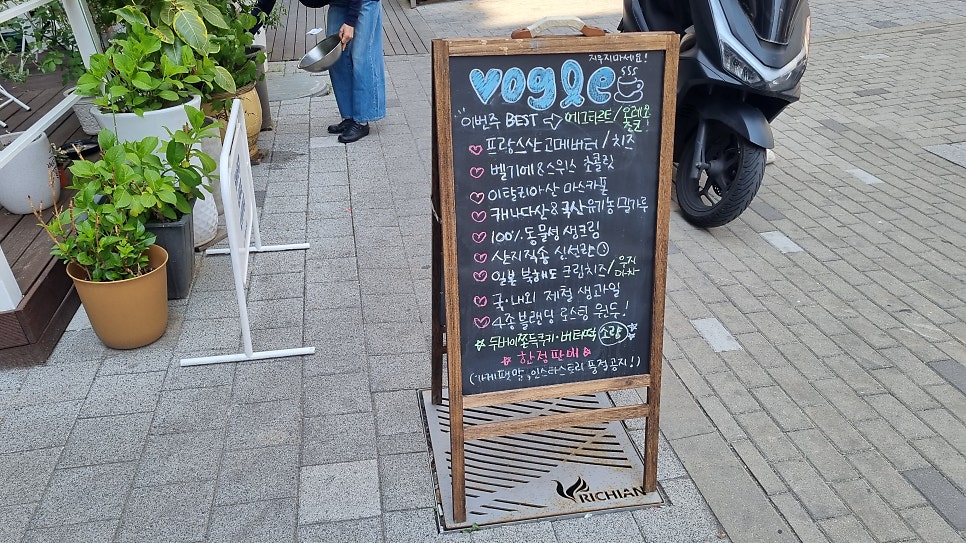 지우지마세요!
vogle
이번주 BEST ⇨ 에그타르트/우레오쵸코
♡ 프랑스산 고메버터/치즈
♡ 벨기에&스위스 초콜릿
♡ 이탈리아산 마스카폰
♡ 캐나다산&국산유기농밀가루
♡ 100% 동물성 생크림
♡ 산지직송 신선란
♡ 일본 북해도 크림치즈/우지마차
♡ 국·내외 제철 생과일
♡ 4종블랜딩 로스팅 원두!
☆두바이쫀득쿠키·버터떡 소량☆
☆한정판매☆
(가게팻말, 인스타스토리 품절공지!)
RICHIAN